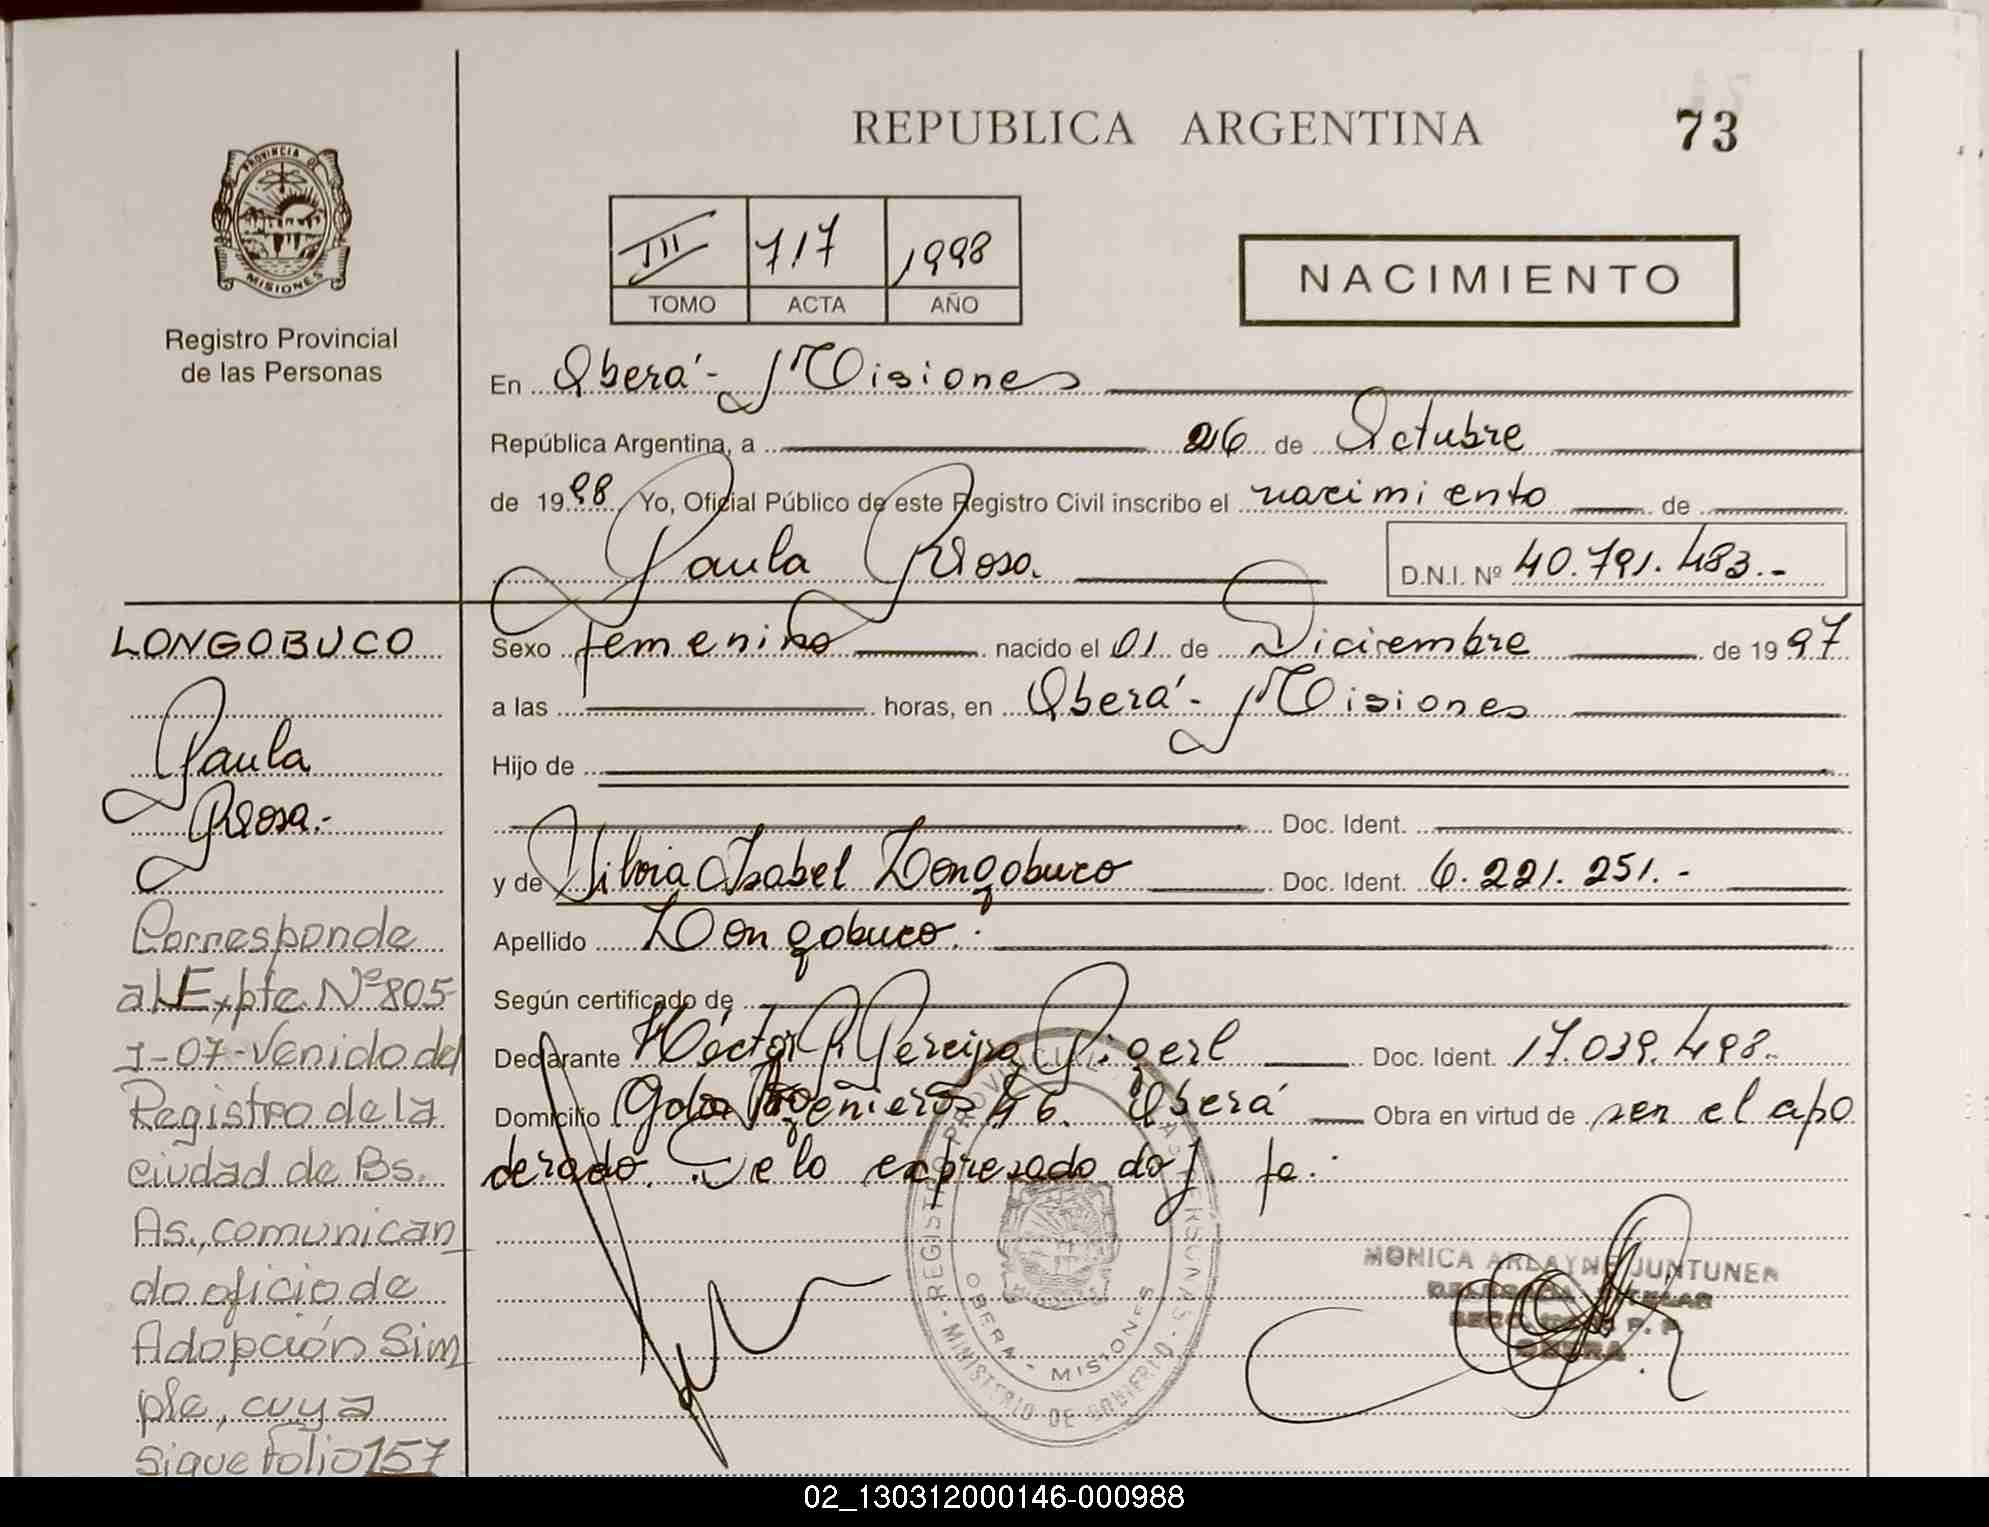 REPUBLICA ARGENTINA 73
PROVINCIA DE
MISIONES
Registro Provincial
de las Personas
III 717 1998
TOMO ACTA AÑO
NACIMIENTO
En Oberá - Misiones
República Argentina, a 26 de Octubre
de 1998 Yo, Oficial Público de este Registro Civil inscribo el nacimiento de
Paula Rosa D.N.I. Nº 40.791.483.-
Sexo femenino nacido el 01 de Diciembre de 1997
a las horas, en Oberá - Misiones
Hijo de
Doc. Ident.
y de Silvia Isabel Longobuco Doc. Ident. 6.221.251.-
Apellido Longobuco.
Según certificado de
Declarante Héctor R. Pereira Pigerl Doc. Ident. 17.039.498.
Domicilio Gdor Ingeniero 46. Oberá Obra en virtud de ser el apo
derado. De lo expresado doy fe.
REGISTRO PROVINCIAL DE LAS PERSONAS
MINISTERIO DE GOBIERNO
OBERA - MISIONES
MONICA ARLAYNE JUNTUNEN
DELEGADA TITULAR
OBERA
LONGOBUCO
Paula
Rosa.-
Corresponde
al Expte. Nº 805-
1-07-Venido del
Registro de la
ciudad de Bs.
As., comunican_
do oficio de
Adopción Sim_
ple, cuya
sigue folio 157
02_130312000146-000988